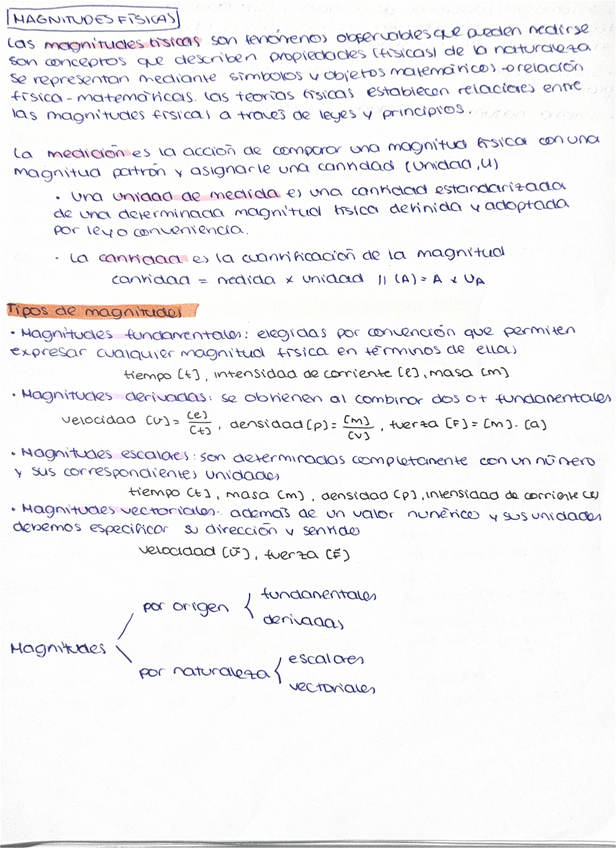 MAGNITUDES FÍSICAS
Las magnitudes físicas son fenómenos observables que pueden medirse
son conceptos que describen propiedades (físicas) de la naturaleza
se representan mediante símbolos y objetos matemáticos → relación
física-matemáticas. Las teorías físicas establecen relaciones entre
las magnitudes físicas a través de leyes y principios.
La medición es la acción de comparar una magnitud física con una
magnitud patrón y asignarle una cantidad (unidad, U)
· Una unidad de medida es una cantidad estandarizada
de una determinada magnitud física definida y adoptada
por ley o conveniencia.
· La cantidad es la cuantificación de la magnitud
cantidad = medida x unidad // (A) = A x UA
Tipos de magnitudes
· Magnitudes fundamentales: elegidas por convención que permiten
expresar cualquier magnitud física en términos de ellas
tiempo [t], intensidad de corriente [l], masa [m]
· Magnitudes derivadas: se obtienen al combinar dos o + fundamentales
velocidad [v] = [e]/[t], densidad [ρ] = [m]/[v], fuerza [F] = [m]·[a]
· Magnitudes escalares: son determinadas completamente con un número
y sus correspondientes unidades
tiempo [t], masa [m], densidad [ρ], intensidad de corriente [l]
· Magnitudes vectoriales: además de un valor numérico y sus unidades
debemos especificar su dirección y sentido
velocidad [v⃗], fuerza [F⃗]
fundamentales
por origen {
derivadas
Magnitudes
escalares
por naturaleza {
vectoriales